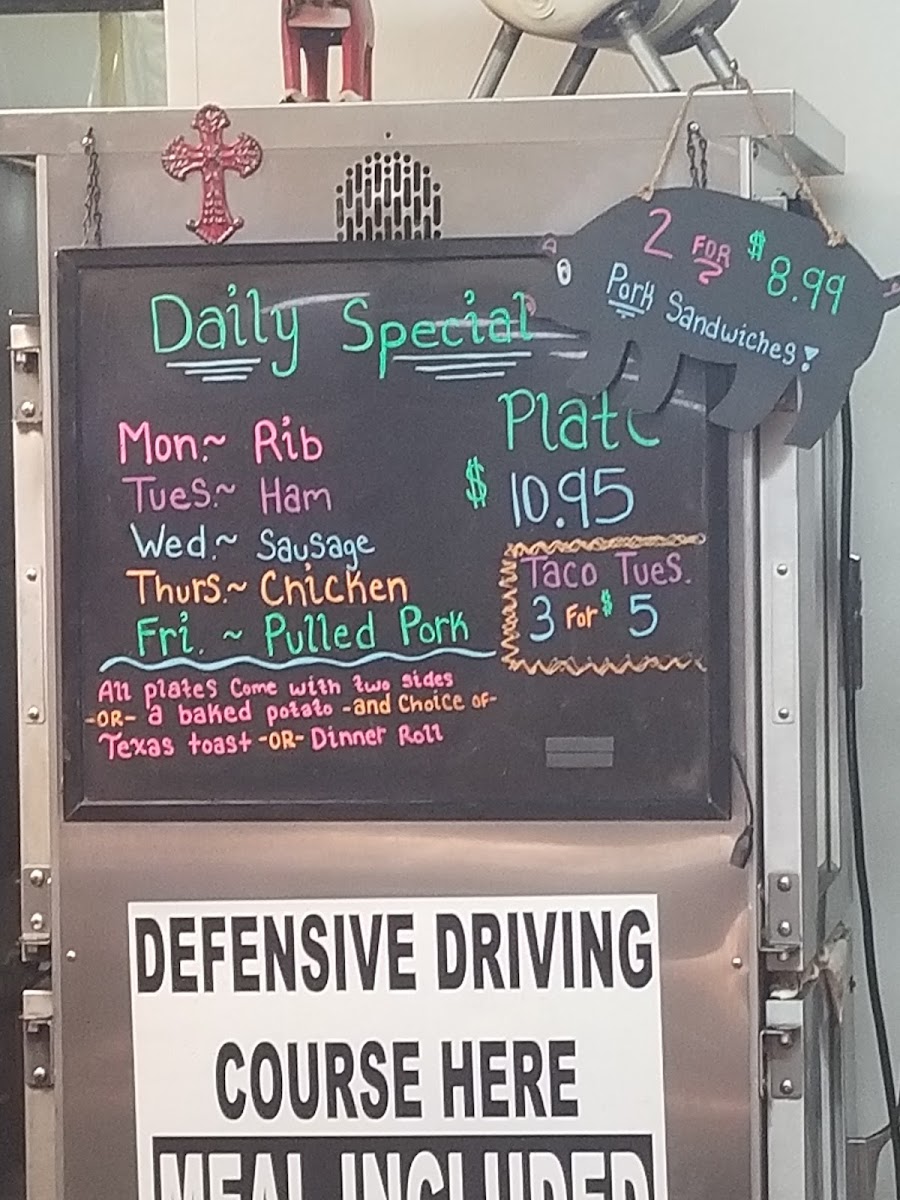 2 FOR $8.99
Pork Sandwiches!
Daily Special
Mon.~ Rib
Tues.~ Ham
Wed.~ Sausage
Thurs.~ Chicken
Fri. ~ Pulled Pork
Plate
$10.95
Taco Tues.
3 For $5
All plates Come with two sides
-OR- a baked potato -and Choice of-
Texas toast -OR- Dinner Roll
DEFENSIVE DRIVING
COURSE HERE
MEAL INCLUDED